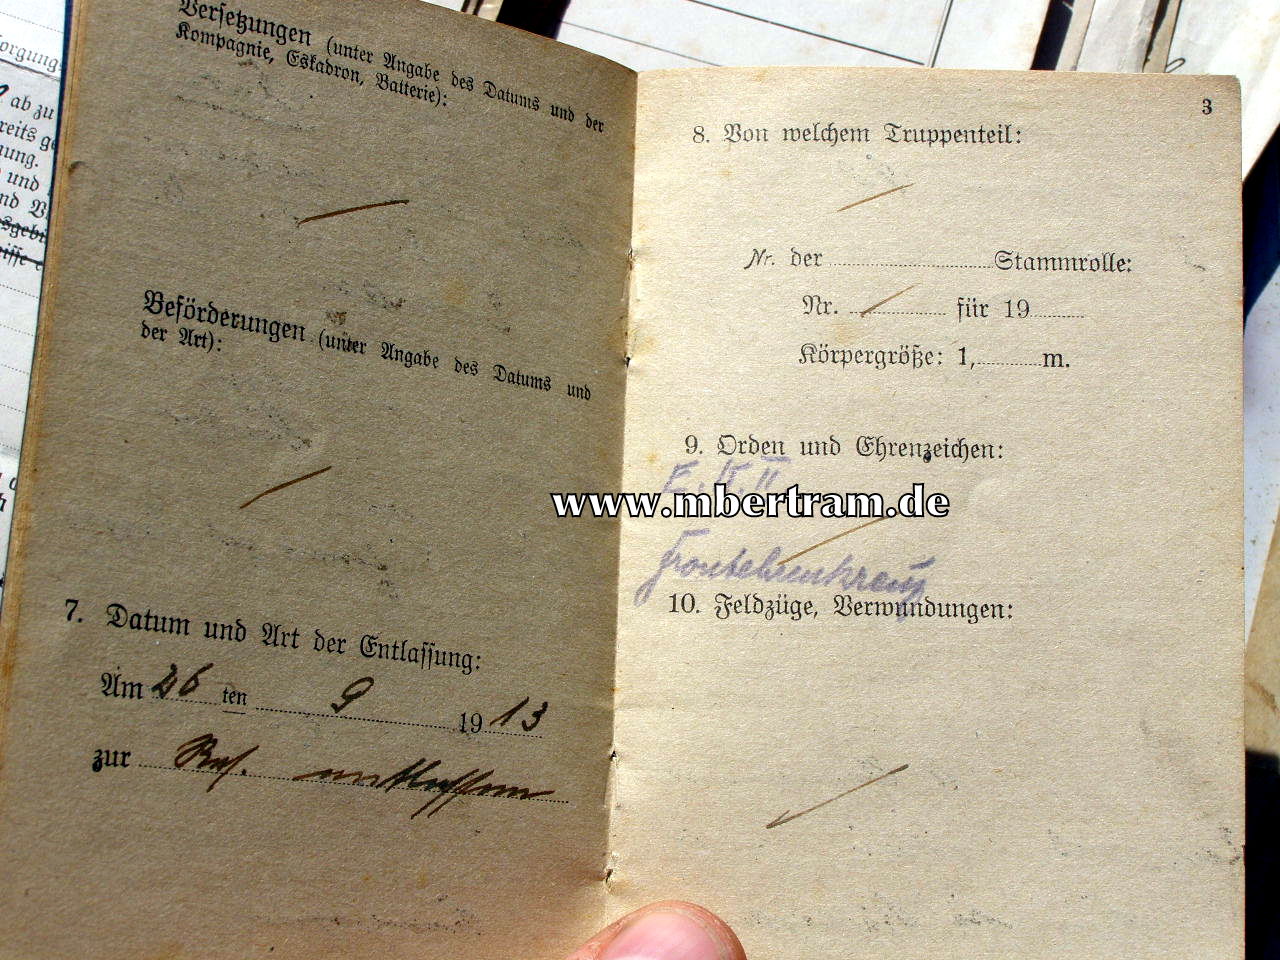 orgung
ab zu
reits ge
nung.
und
nd V
sgebi
Versetzungen (unter Angabe des Datums und der
Kompagnie, Eskadron, Batterie):
Beförderungen (unter Angabe des Datums und
der Art):
7. Datum und Art der Entlassung:
Am 26 ten 9 1913
zur Res. entlassen
3
8. Von welchem Truppenteil:
Nr. der Stammrolle:
Nr. für 19
Körpergröße: 1, m.
9. Orden und Ehrenzeichen:
E. K. II
www.mbertram.de
Frontehrenkreuz
10. Feldzüge, Verwundungen: